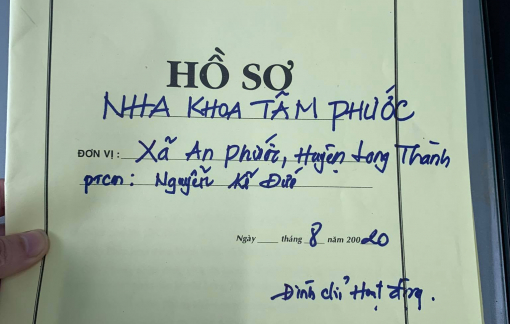 HỒ SƠ
NHA KHOA TÂM PHƯỚC
ĐƠN VỊ: Xã An Phước, Huyện Long Thành
ptcm: Nguyễn Kĩ
Ngày ___ tháng 8 năm 20020
Đình chỉ Hoạt động.